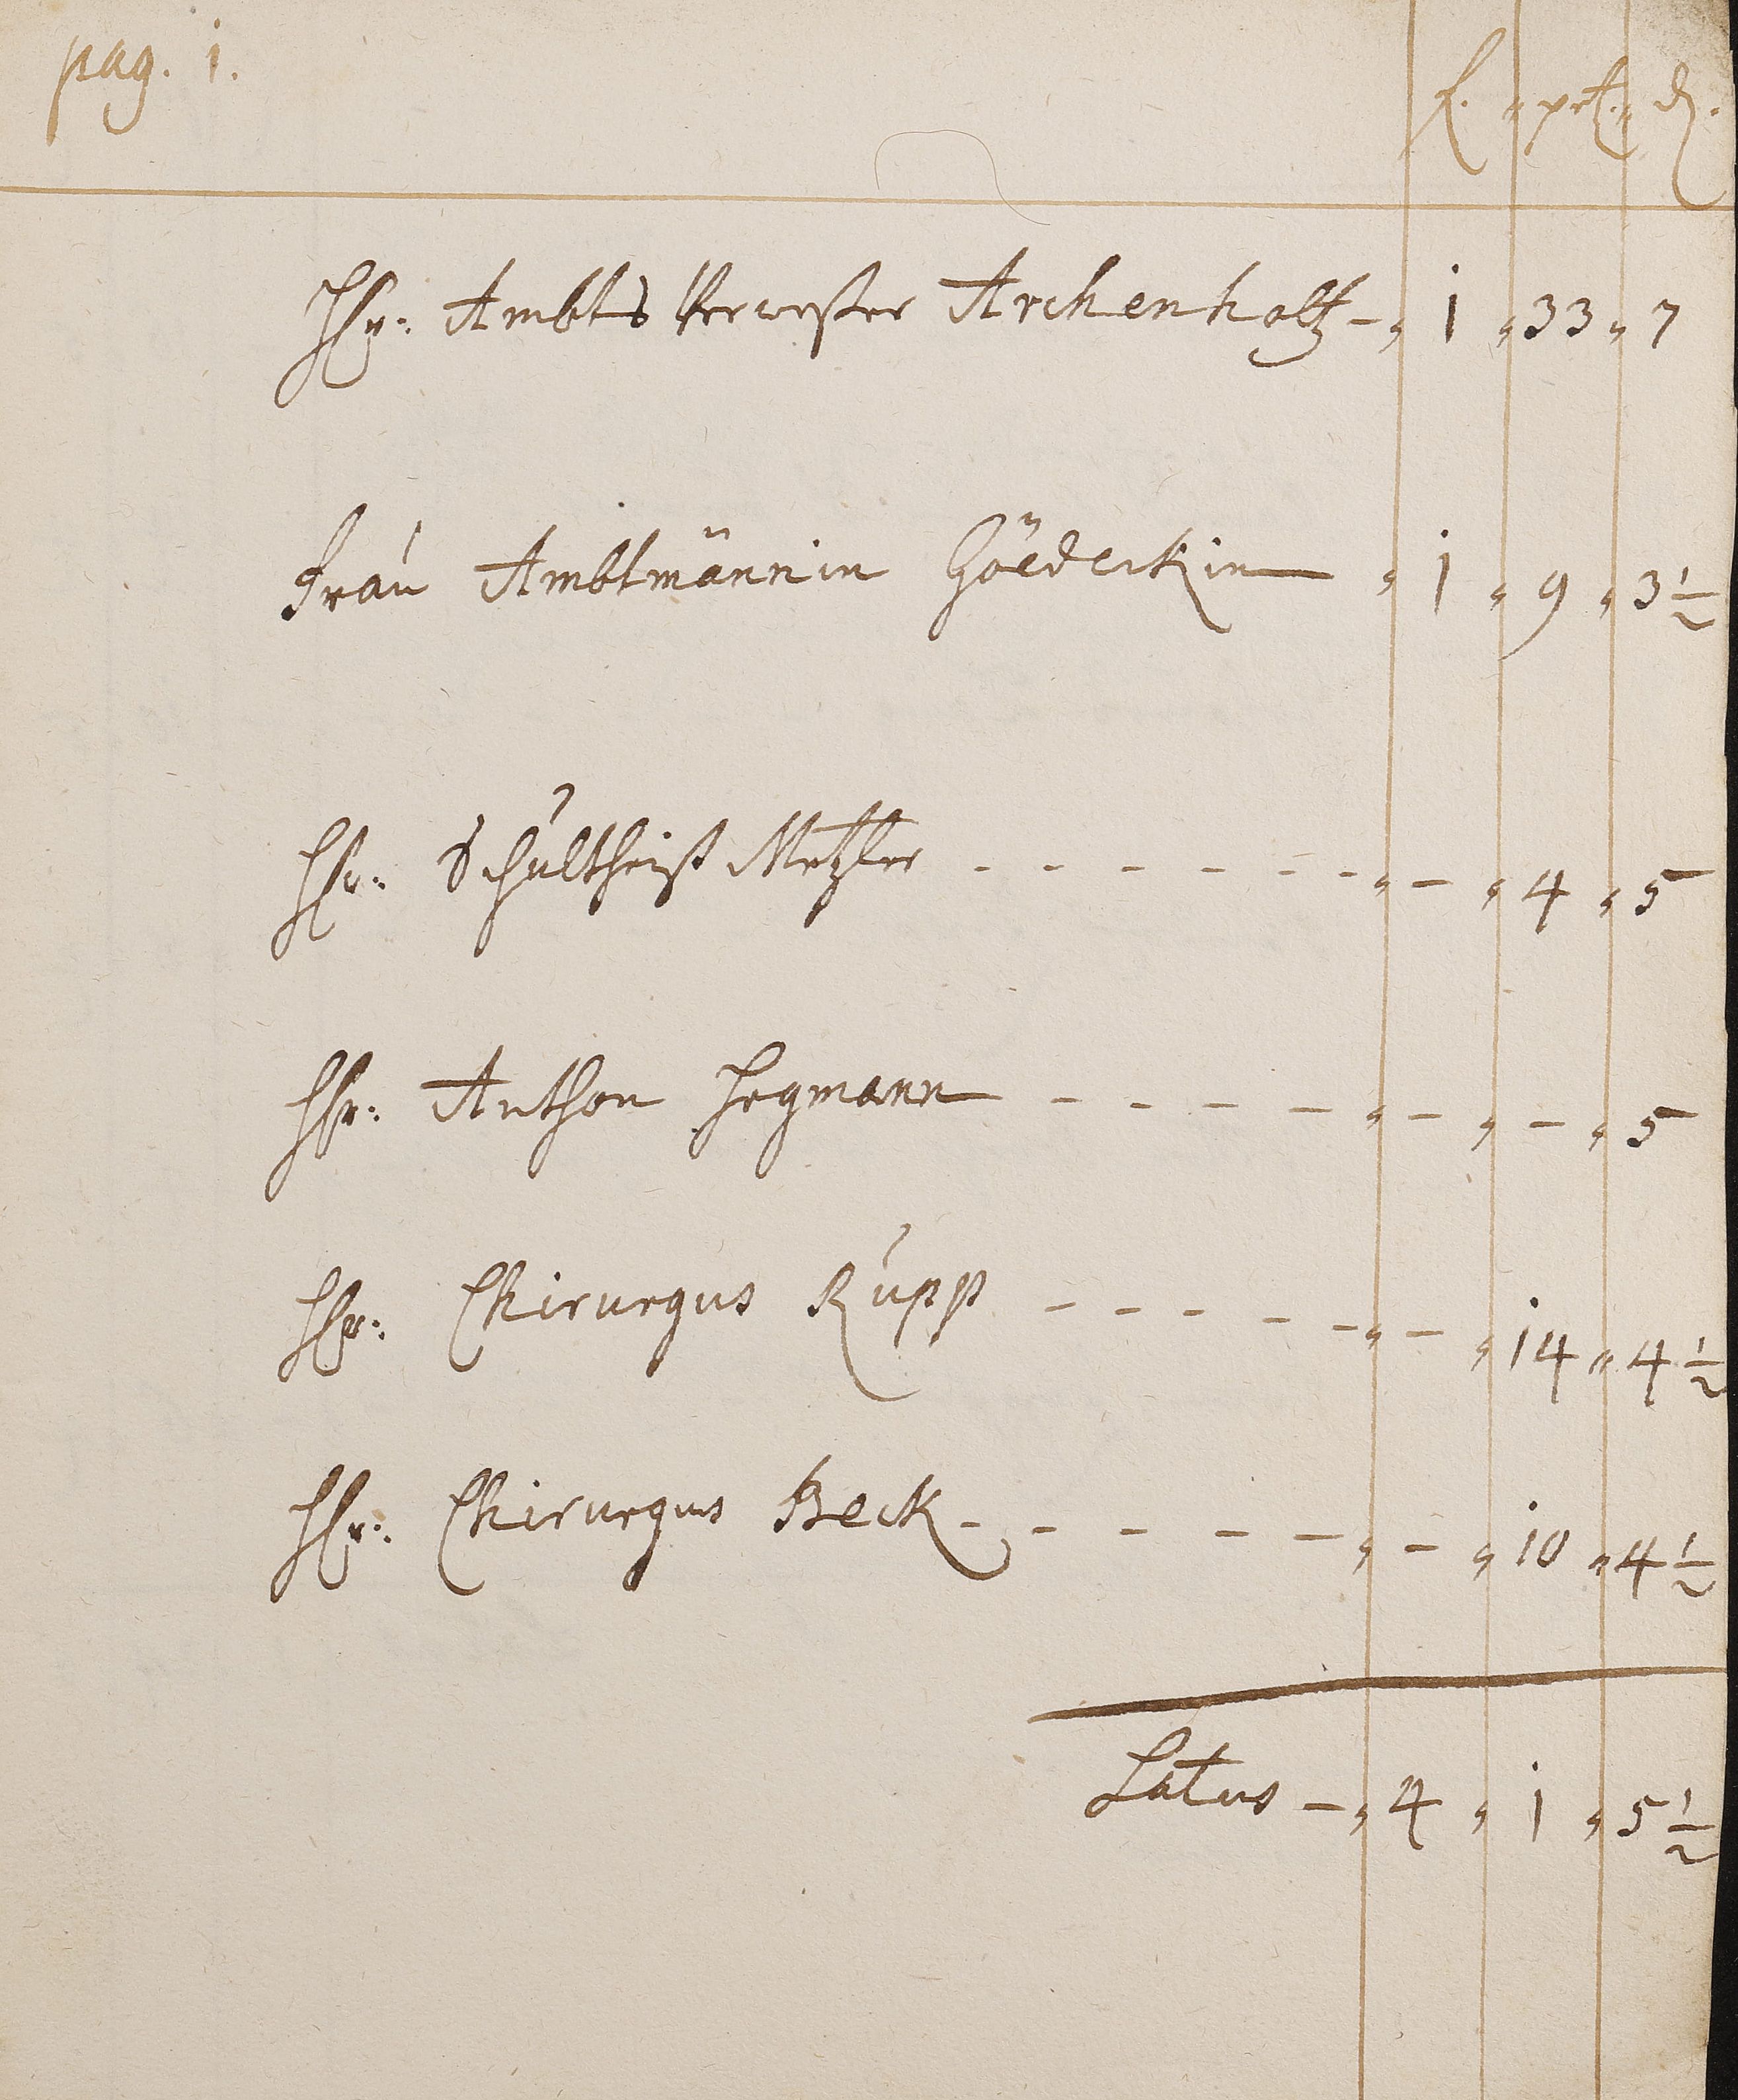 pag. 1.
f. " prt. " d.
Hr: Ambts Verweßer Archenholtz - " 1 " 33 " 7
Fraú Ambtmännin Göedeckin — " 1 " 9 " 3 1/2
Hr: Schúltheiß Metzler - - - - - - " - " 4 " 5
Hr: Anthon Hegmann - - - - " - " - " 5
Hr: Chirurgus Rúpp - - - - - " - " 14 " 4 1/2
Hr: Chirurgus Beck - - - - - " - " 10 " 4 1/2
Latus - " 4 " 1 " 5 1/2